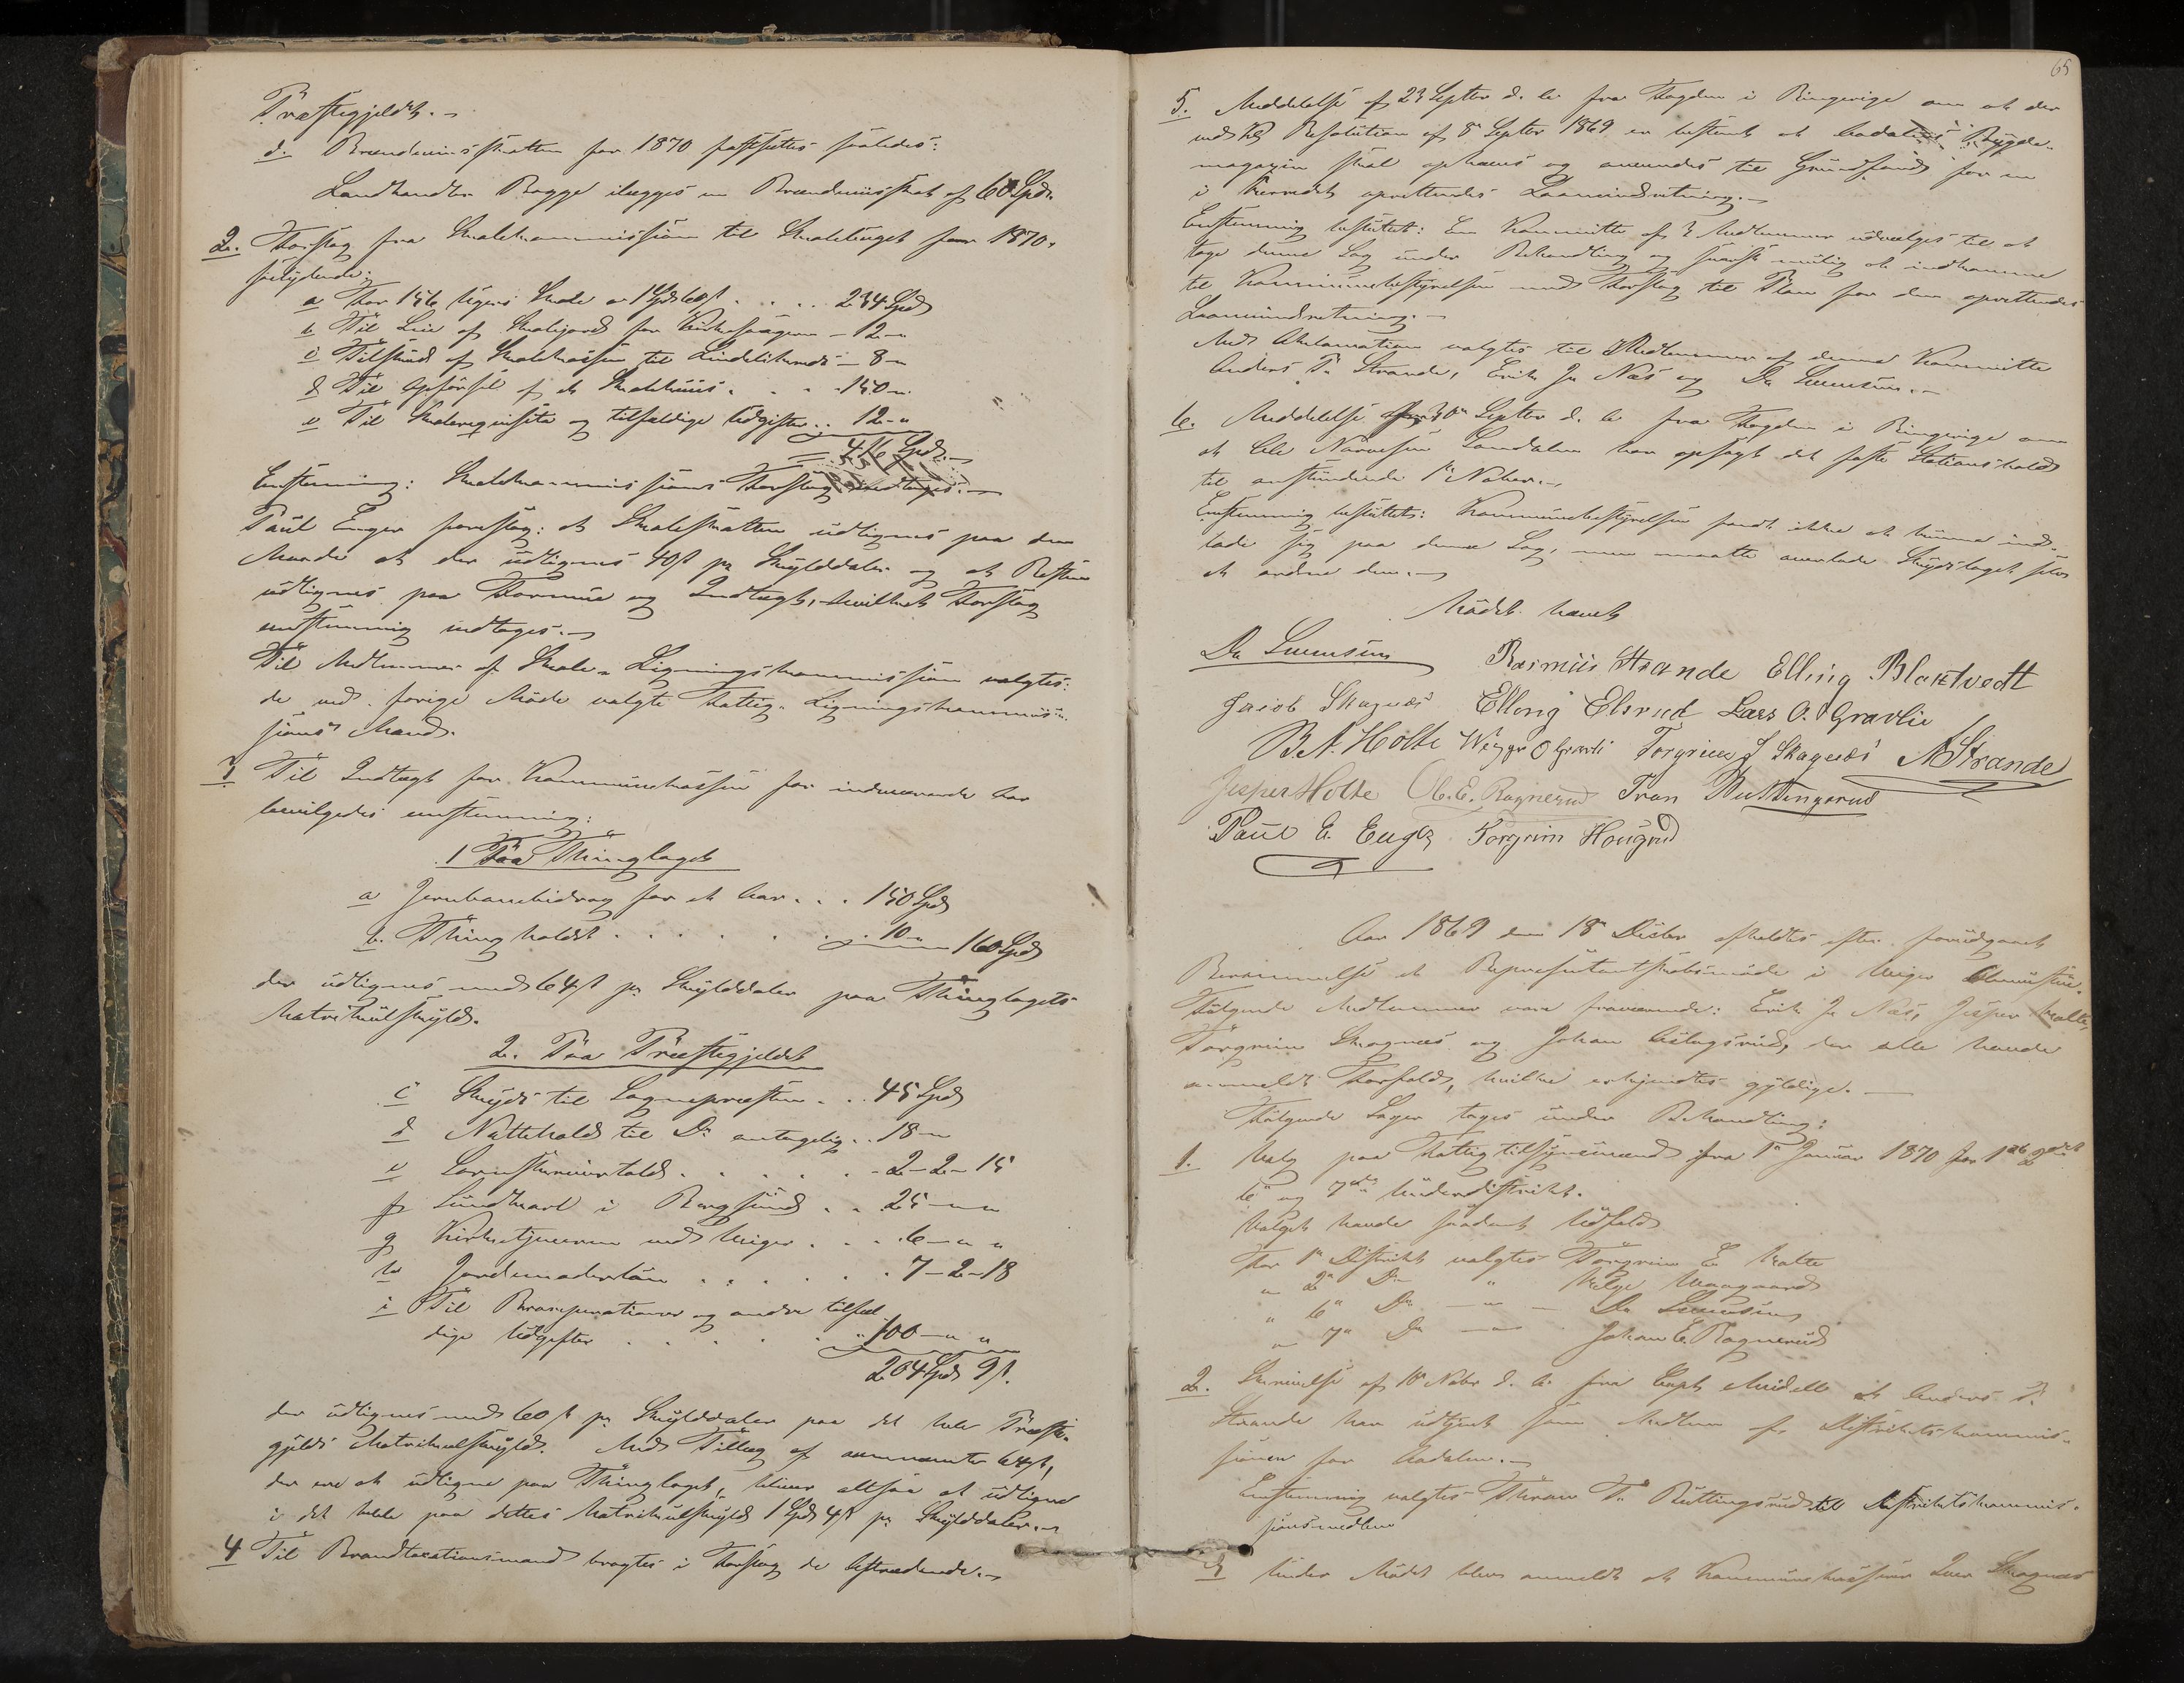 Præstegjeldet.
d. Brændeviinsskatten for 1870 fastsættes saaledes:
Landhandler Bagge ilægges en Brændeviinsskat af 60 Spdr.
2. Forslag fra Skolekommissionen til Skoletuget for 1870,
saalydende:
a For 156 Ugers Skole a 1 Spd 60 ß . . . . 234 Spd
b Til Leie af Skolejord for Kirkesangeren – 12 – "
c Tilskud af Skolekassen til – 8 – "
d Til Opførsel af et Skolehuus . . . . 150 – "
e Til Skolerequisita og tilfældige Udgifter . . 12 – "
416 Spd.
Enstemmig: Skolekommissionens Forslag indtages.
Paul Enger foreslog: at Skoleskatten udlignes paa den
Maade at der udlignes 40 ß pr Skylddaler og at Resten
udlignes paa Formue og Indtægt, hvilket Forslag
enstemmig indtoges.
Til Medlemmer af Skole-Ligningskommissionen valgtes:
de ved forrige Møde valgte Fattig-Ligningskommis-
sions Mænd.
3 Til Indtægt for Kommunekassen for indeværende Aar
bevilgedes enstemmig:
1 Paa Thinglaget
a Jernbanebidrag for et Aar . . . 150 Spd
b. Thingholdet . . . . . . 10 " 160 Spd
der udlignes med 64 ß pr Skylddaler paa Thinglagets
Matrikulskyld.
2. Paa Præstegjeldet
c Skyds til Sognepræsten . . . 45 Spd
d Nattehold til Do antagelig . . 18 – "
e . . . . . . 2 – 2 – 15
f Sundkarl i Bergsund . . . 25 – " – "
g Kirketjeneren ved Viger . . . 6 – " – "
h Jordemoderløn . . . . . . 7 – 2 – 18
i Til Broreparationer og andre tilfæl-
dige Udgifter . . . . . . 100 – " – "
204 Spd 9 ß.
der udlignes med 60 ß pr Skylddaler paa det hele Præste-
gjelds Matrikulskyld. Med Tillæg af ovennævnte 64 ß,
der ere at udligne paa Thinglaget, bliver altsaa at udligne
i det hele paa dettes Matrikulskyld 1 Spd 4 ß pr Skylddaler.
4 Til Brandtaxationsmænd bragtes i Forslag de aftrædende.
65
5. Meddelelse af 23 Septbr d. A. fra Fogden i Ringerige om at der
ved Kgl Resolution af 8 Septbr 1869 er bestemt at Aadalens Bygde-
magazin skal ophæves og anvendes til Grundfond for en
i Herredet oprettendes Laaneindretning.
Enstemmig besluttet: En Kommitte af 3 Medlemmer udvælges til at
tage denne Sag under Behandling og snarest mulig at indkomme
til Kommunebestyrelsen med Forslag til Plan for den oprettendes
Laaneindretning.
Med Aklamation valgtes til Medlemmer af denne Kommitte
Anders P. Strande, Erik J. Næs og Da Svensen.
6. Meddelelse 30 Septbr d. A. fra Fogden i Ringerige om
at Ole Narvesen Sandalen har opsagt det faste Stationshold
til anstundende 1 Novbr.
Enstemmig besluttet: Kommunebestyrelsen fandt ikke at kunne ind-
lade sig paa denne Sag, men maatte overlade Skydslaget selv
at ordne den.
Mødet hævet
Da Svensen Rasmus Strande Elling Blaktvedt
Jacob Skagnæs Elling Elsrud Lars O. Gravlie
B. A. Holte Wiggo O Gravli Torgrim J Skagnæs A Strande
Jesper Holte Ole E. Ragnerud Tron Buttingsrud
Paul E. Enger Torgrim Hougerud
Aar 1869 den 18 Decbr afholdtes efter forudgaaet
Berammelse et Repræsentantskabsmøde i Viger Almuestue.
Følgende Medlemmer vare fraværende: Erik J. Næs, Jesper Holte,
Torgrim Skagnæs og Johan Aslagsrud, der alle havde
anmeldt Forfald, hvilke erkjendtes gyldige.
Følgende Sager toges under Behandling:
1. Valg paa Fattigtilsynsmænd fra 1 Januar 1870 for 1ste 2det
6 og 7de Underdistrikt.
Valget havde saadant Udfald
For 1 Distrikt valgtes Torgrim E. Holte
" 2 Do " Helge Vaagaard
" 6 Do – " – Da Svensen
" 7 Do – " – Johan E. Ragnerud
2. Skrivelse af 10 Novbr d. A. fra Capt at Anders P.
Strande har udtjent som Medlem af Distriktskommis-
sionen for Aadalen.
Enstemmig valgtes Thron T. Buttingsrud til Distriktskommis-
sionsmedlem
3 Under Mødet blev anmeldt at Kommunekasserer Iver Skagnæs